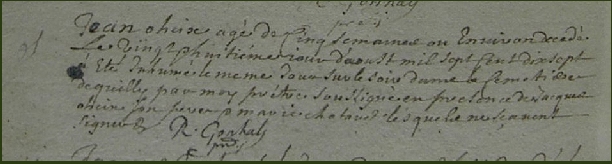 Jean oheix agé de Cinq Semaines ou Environ decedé
Le vingt & huitiéme jour daoust mil sept Cent dix sept
a Eté Inhumé le meme Jour sur le soir dans le Cemetiere
de quelles par moy prétre soussigné en presence de Jacques
oheix son pere & marie chataud lesquels ne scavent
signer & R Gorhay